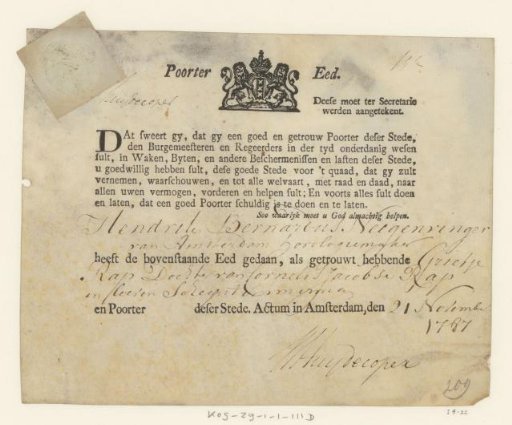 Poorter Eed.
Huydecoper
Deese moet ter Secretarie
werden aangetekent.
DAt sweert gy, dat gy een goed en getrouw Poorter deser Stede,
den Burgemeesteren en Regeerders in der tyd onderdanig wesen
sult, in Waken, Byten, en andere Beschermenissen en lasten deser Stede,
u goedwillig hebben sult, dese goede Stede voor 't quaad, dat gy zult
vernemen, waarschouwen, en tot alle welvaart, met raad en daad, naar
allen uwen vermogen, vorderen en helpen sult; En voorts alles sult doen
en laten, dat een goed Poorter schuldig is te doen en te laten.
Soo waarlyk moet u God almachtig helpen.
Hendrik Bernardus
van Amsterdam horologiemaker
heeft de bovenstaande Eed gedaan, als getrouwt hebbende Grietje
Kap Dogter van Cornelis Jacobse Kap
in sleeren
en Poorter deser Stede. Actum in Amsterdam, den 21 November
1787
Huydecoper
209
KOG-ZG-1-1-111D